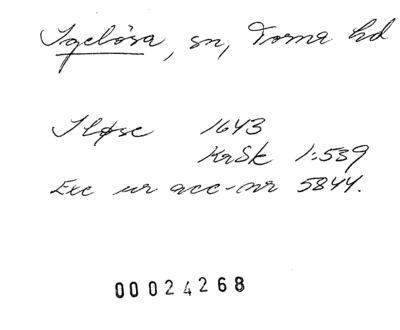 Igelösa, sn, Torna hd
Iløse 1643
KrSk 1:539
Exc ur acc-nr 5844.
00024268